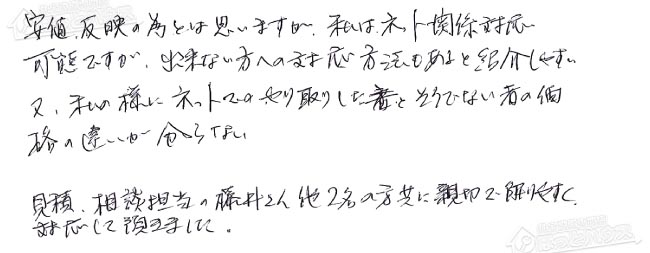 安値反映の為とは思いますが、私はネット関係対応
可能ですが、出来ない方への対応方法もあると紹介しやすい
又、私の様にネットでのやり取りした者とそうでない者の価
格の違いが分らない
見積、相談担当の藤井さん他2名の方共に親切で解りやすく
対応して頂きました。